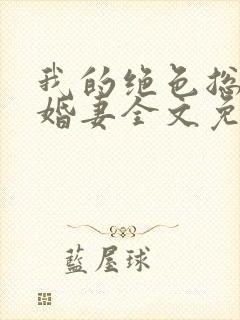 我的绝色总
婚妻全文免
藍屋球